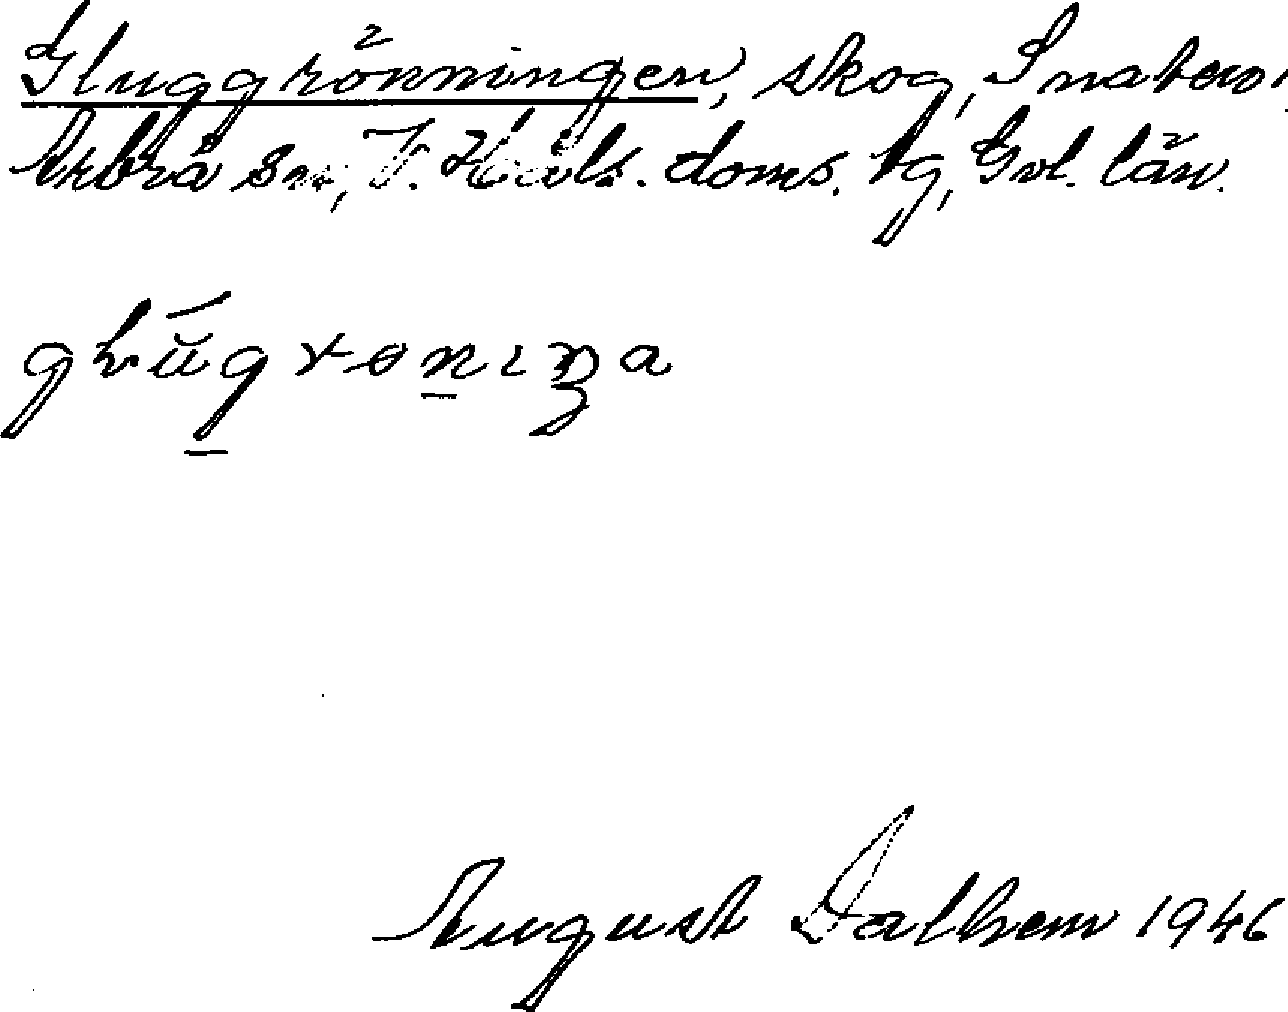 Gluggrönningen, skog, Snaten
Arbrå sn, V. Häls. doms. tg, Gvl. län.
August Dalhem 1946